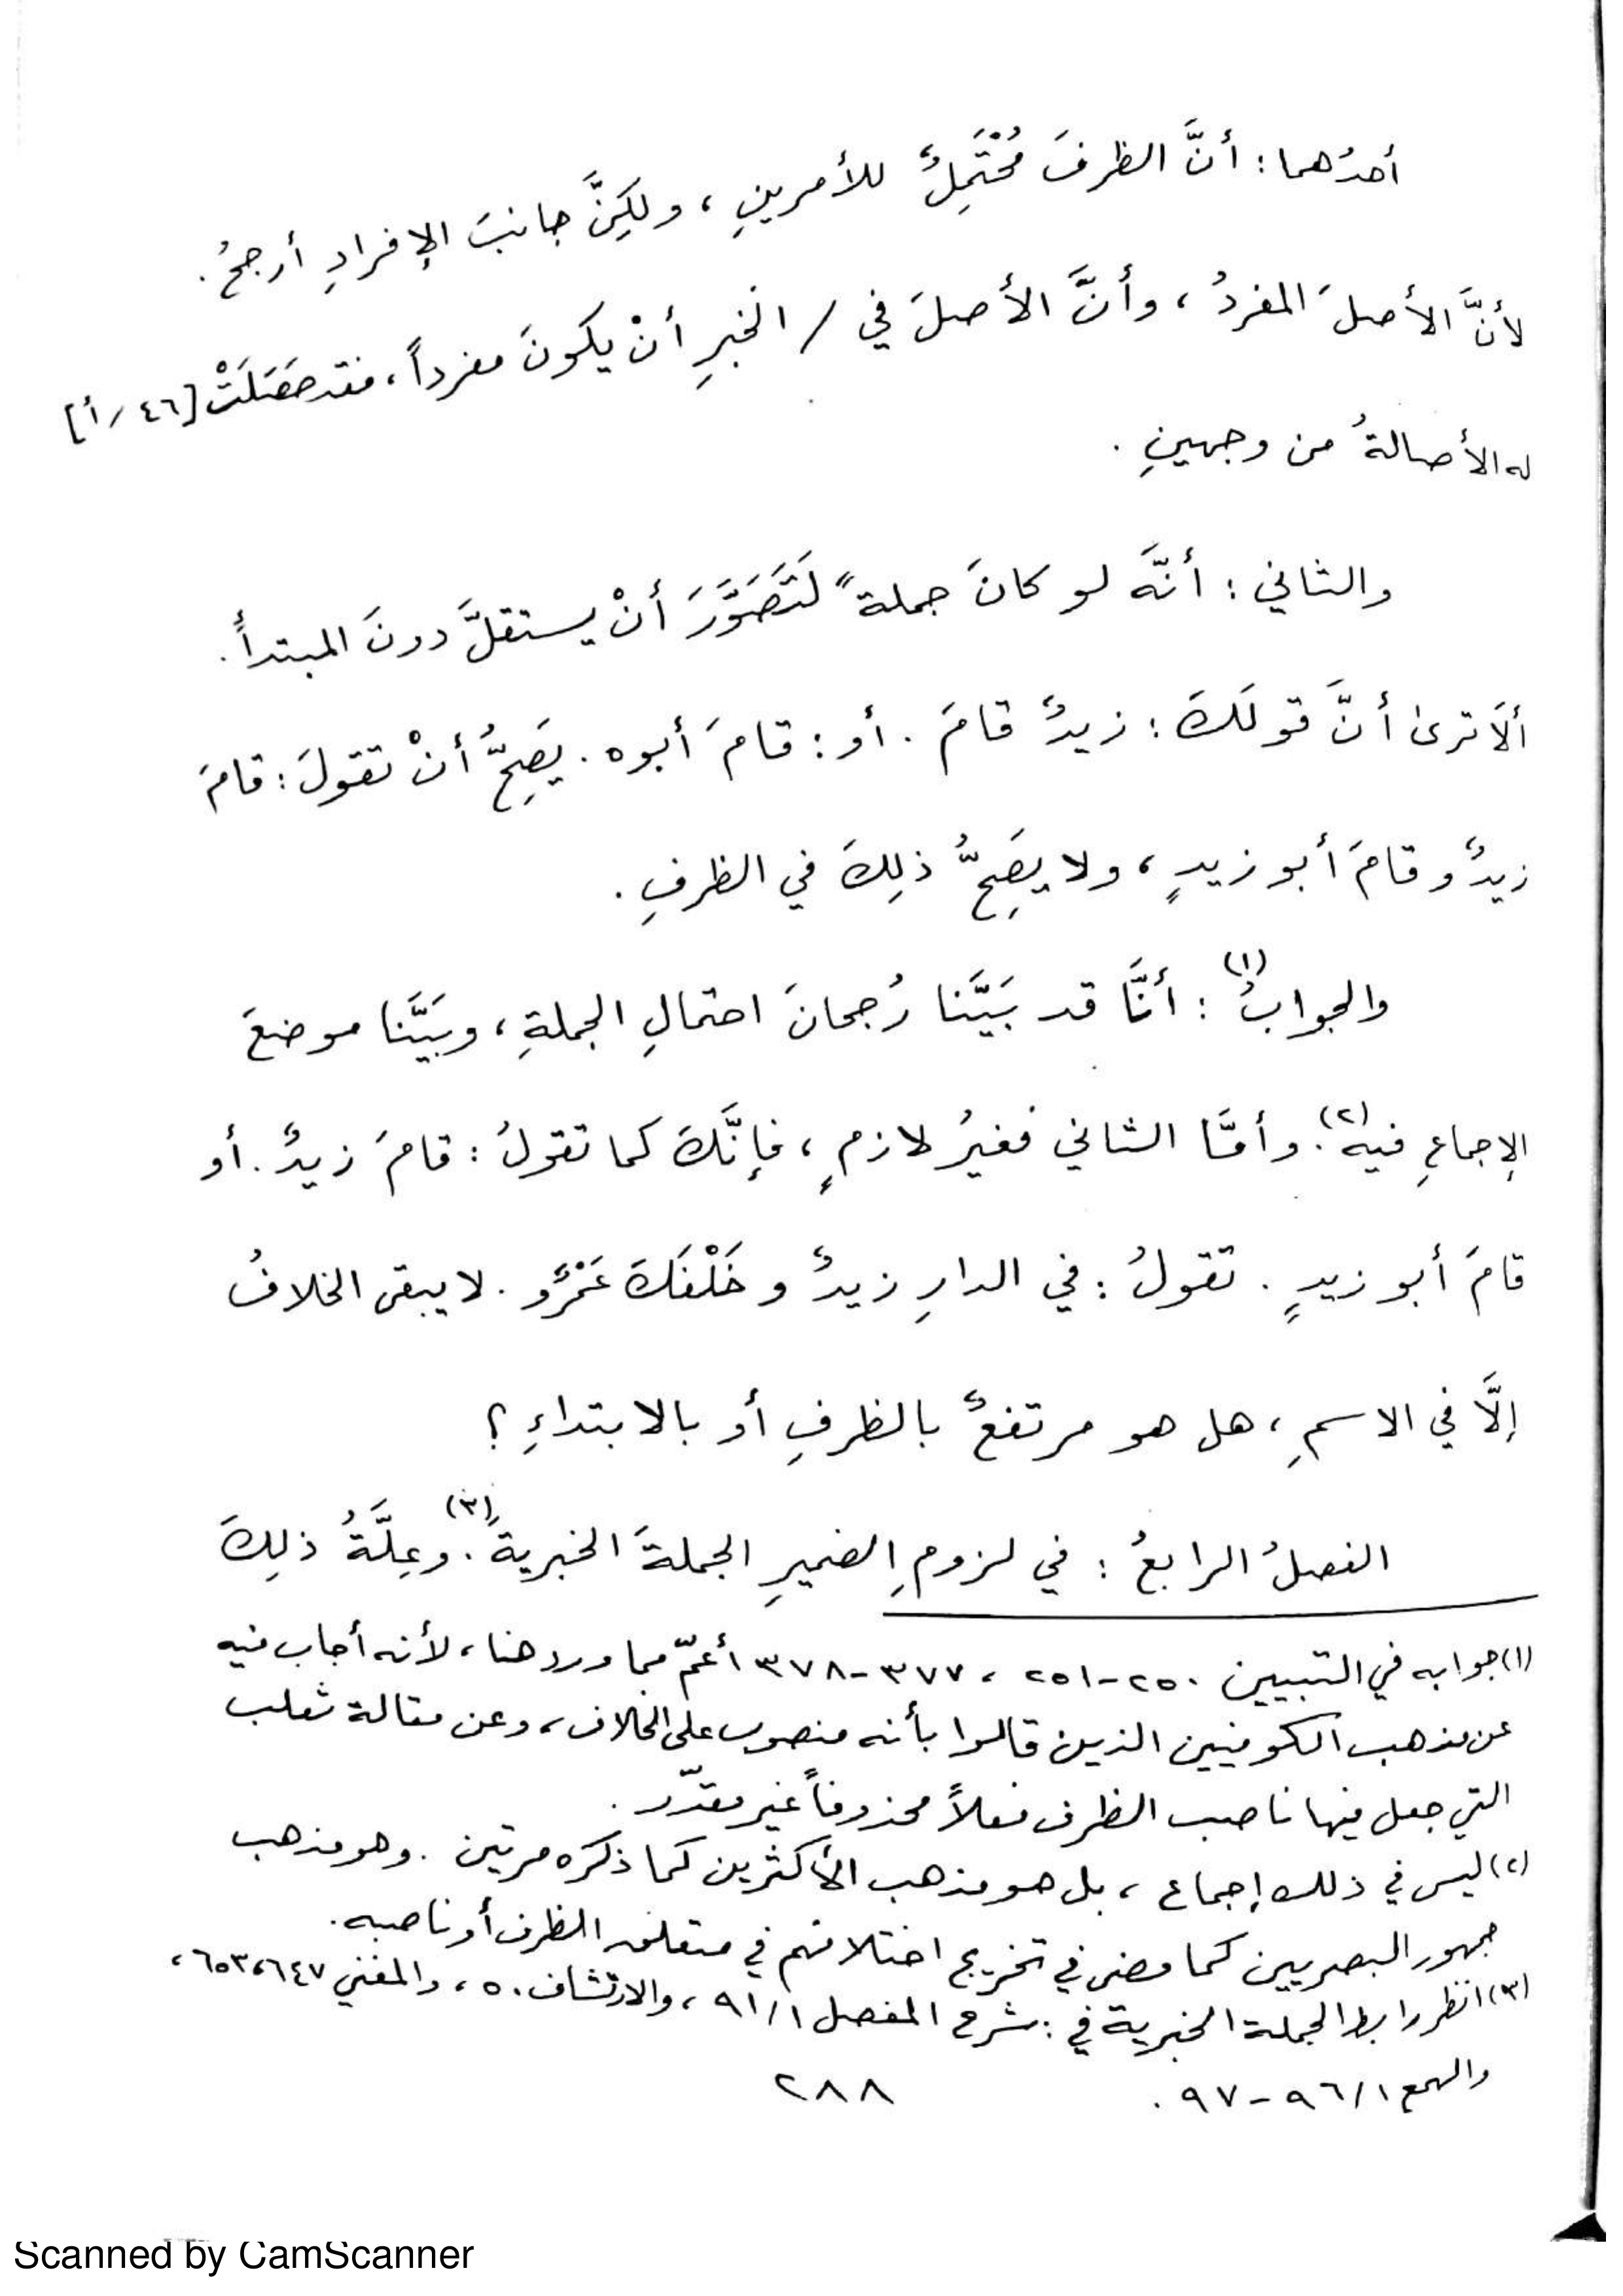 أحدُهما : أنَّ الظرفَ مُحْتَمِلٌ للأمرينِ ، ولكِنَّ جانبَ الإفرادِ أرجحُ .
لأنَّ الأصلَ المفردُ ، وأنَّ الأصلَ في / الخبرِ أنْ يكونَ مفرداً ، فقد حَصَلَتْ [٤٦/أ]
له الأصالةُ من وجهينِ .
والثاني : أنَّه لو كانَ جملةً لَتَصَوَّرَ أنْ يستقلَّ دونَ المبتدأِ .
ألَا ترىٰ أنَّ قولَكَ : زيدٌ قامَ . أو : قامَ أبوه . يَصِحُّ أنْ تقولَ : قامَ
زيدٌ وقامَ أبو زيدٍ ، ولا يصَحِّ ذلِكَ في الظرفِ .
والجوابُ (١) : أنَّا قد بَيَّنا رُجحانَ احتمالِ الجملةِ ، وبَيَّنا موضعَ
الإجماعِ فيه (٢) . وأمَّا الثاني فغيرُ لازمٍ ، فإنَّكَ كما تقولُ : قامَ زيدٌ . أو
قامَ أبو زيدٍ . تقولُ : في الدارِ زيدٌ وخَلْفَكَ عَمْرٌو . لا يبقى الخلافُ
إلَّا في الاسمِ ، هل هو مرتفعٌ بالظرفِ أو بالابتداءِ ؟
الفصلُ الرابعُ : في لزومِ الضميرِ الجملةَ الخبريةَ (٣) . وعِلَّةُ ذلِكَ
(١) جوابه في التبيين ٢٥٠-٢٥١ ، ٣٧٧-٣٧٨ أعمّ مما ورد هنا ، لأنه أجاب فيه
عن مذهب الكوفيين الذين قالوا بأنه منصوب على الخلاف ، وعن مقالة ثعلب
التي جعل فيها ناصب الظرف فعلاً محذوفاً غير مقدّر .
(٢) ليس في ذلك إجماع ، بل هو مذهب الأكثرين كما ذكره مرتين . وهو مذهب
جمهور البصريين كما مضى في تخريج اختلافهم في متعلق الظرف أو ناصبه .
(٣) انظر رابط الجملة الخبرية في : شرح المفصل ٩١/١ ، والارتشاف ٥٠ ، والمغني ٦٤٧ ، ٦٥٣ ،
والهمع ٩٦/١-٩٧ .
٢٨٨
Scanned by CamScanner